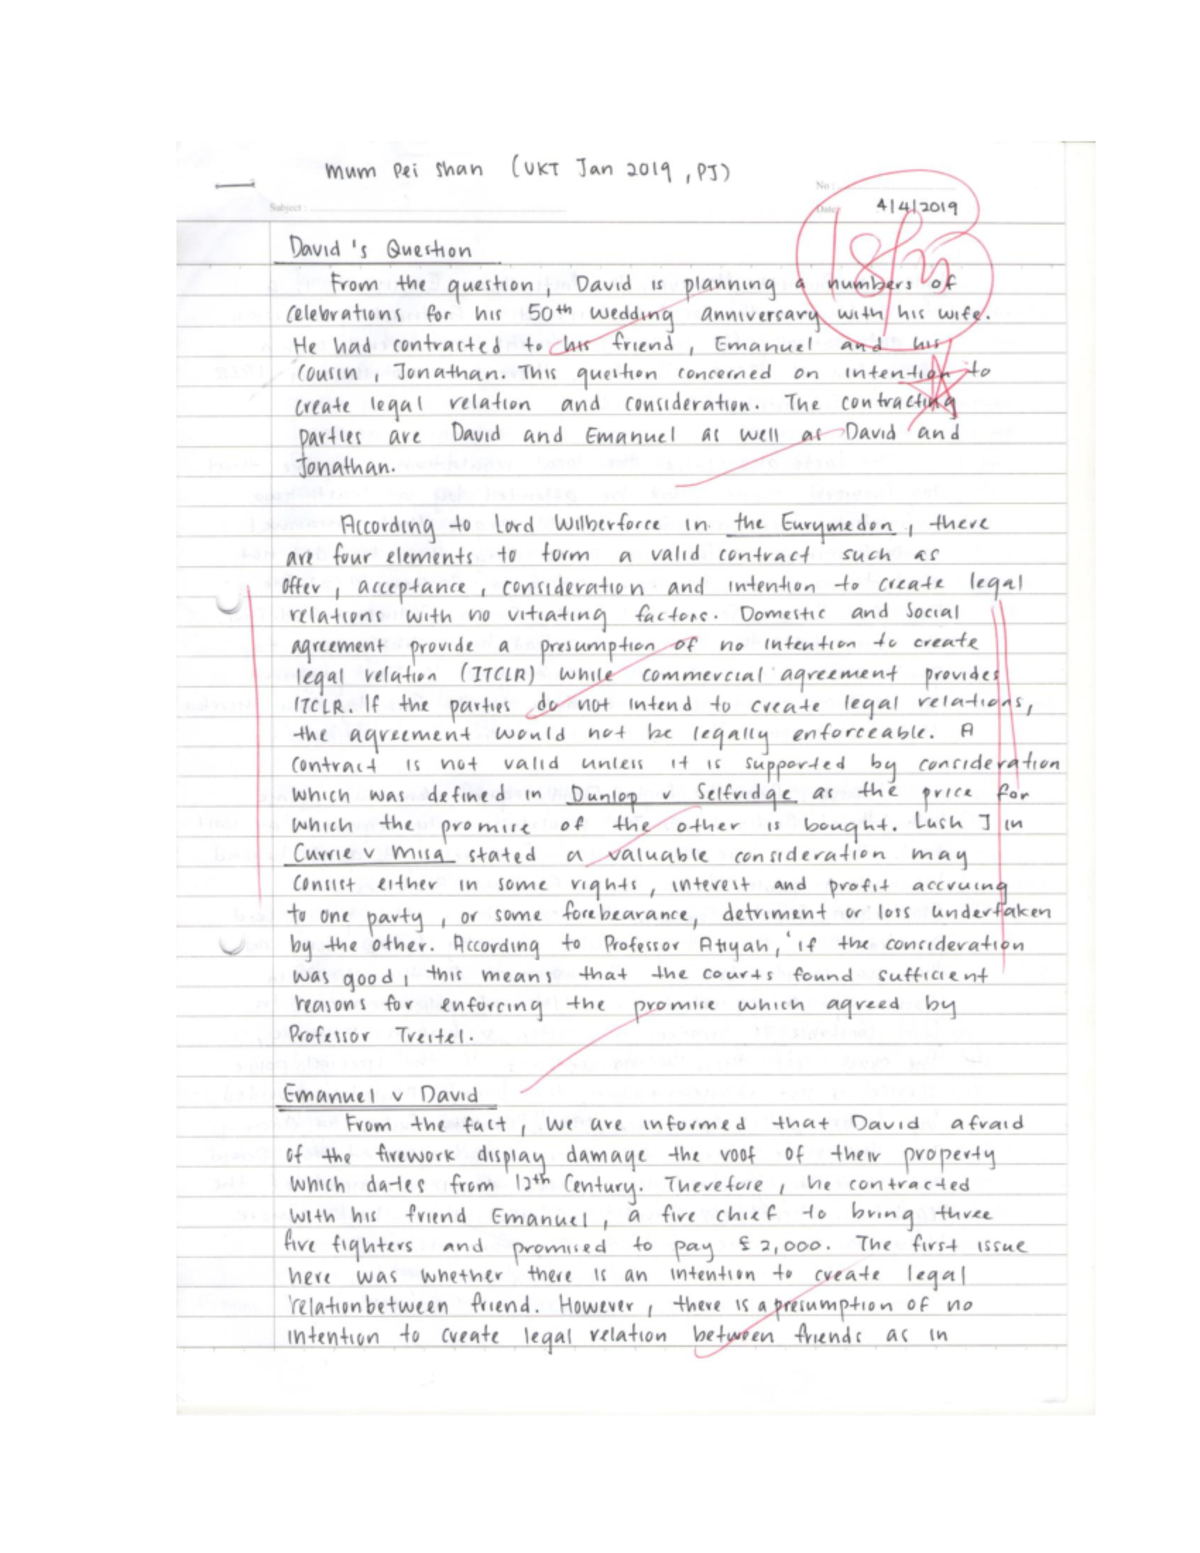 Mum Pei Shan (UKT Jan 2019, PJ)
No :
Subject :
Date: 4/4/2019
18/25
David's Question
From the question, David is planning a numbers of
celebrations for his 50th wedding anniversary with his wife.
He had contracted to his friend, Emanuel and his
cousin, Jonathan. This question concerned on intention to
create legal relation and consideration. The contracting
parties are David and Emanuel as well as David and
Jonathan.
According to Lord Wilberforce in the Eurymedon, there
are four elements to form a valid contract such as
offer, acceptance, consideration and intention to create legal
relations with no vitiating factors. Domestic and Social
agreement provide a presumption of no intention to create
legal relation (ITCLR) while commercial agreement provides
ITCLR. If the parties do not intend to create legal relations,
the agreement would not be legally enforceable. A
contract is not valid unless it is supported by consideration
which was defined in Dunlop v Selfridge as the price for
which the promise of the other is bought. Lush J in
Currie v Misa stated a valuable consideration may
consist either in some rights, interest and profit accruing
to one party, or some forebearance, detriment or loss undertaken
by the other. According to Professor Atiyah, 'if the consideration
was good, this means that the courts found sufficient
reasons for enforcing the promise which agreed by
Professor Treitel.
Emanuel v David
From the fact, we are informed that David afraid
of the firework display damage the roof of their property
which dates from 12th Century. Therefore, he contracted
with his friend Emanuel, a fire chief to bring three
fire fighters and promised to pay £2,000. The first issue
here was whether there is an intention to create legal
relation between friend. However, there is a presumption of no
intention to create legal relation between friends as in